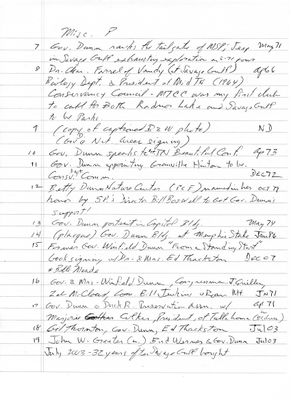 Misc. P
7 Gov. Dunn marks the tailgate of MSP; Jeep May 71
in Savage Gulf exhausting exploration
8 Dr. Chas. Farrel of Vandy (at Savage Gulf) Ap 66
Biology Dept. & President of Mid TN (1964)
Conservancy Council - MTCC was my first club
to call for Both Radnor Lake and Savage Gulf
to be Parks
9 (copy of captioned B & W photo) ND
(Gov's Nat. Areas signing)
10 Gov. Dunn speaks to TN Beautiful Conf. Ap 73
11 Gov. Dunn appointing Granville Hinton to be
Consv. Comm. Dec 72
12 Betty Dunn Nature Center Oct 79
honor by SP's Director Bill Boswell to Get Gov. Dunn's
support!
13 Gov. Dunn portrait in Capitol Bldg. May 79
14 (plaque) Gov. Dunn Bldg at Memphis State Jan 86
15 Former Gov. Winfield Dunn "From a Standing Start"
book signing w/ Dr. & Mrs. Ed Thackston Dec 07
@ Belle Meade
16 Gov. & Mrs. Winfield Dunn, Congressman J. Quillen,
Zel McCloud, Comm. Bill Jenkins @ Roan Mt Jn 71
17 Gov. Dunn @ Duck R. Preservation Assn. w/ Ap 71
Marjorie Collier, President, at Tullahoma
18 Gif Thornton, Gov. Dunn, Ed Thackston Jul 03
19 John W. Greeter (Sn.) Ent. Warner & Gov. Dunn Jul 03
July, 2003 - 32 years after Savage Gulf bought